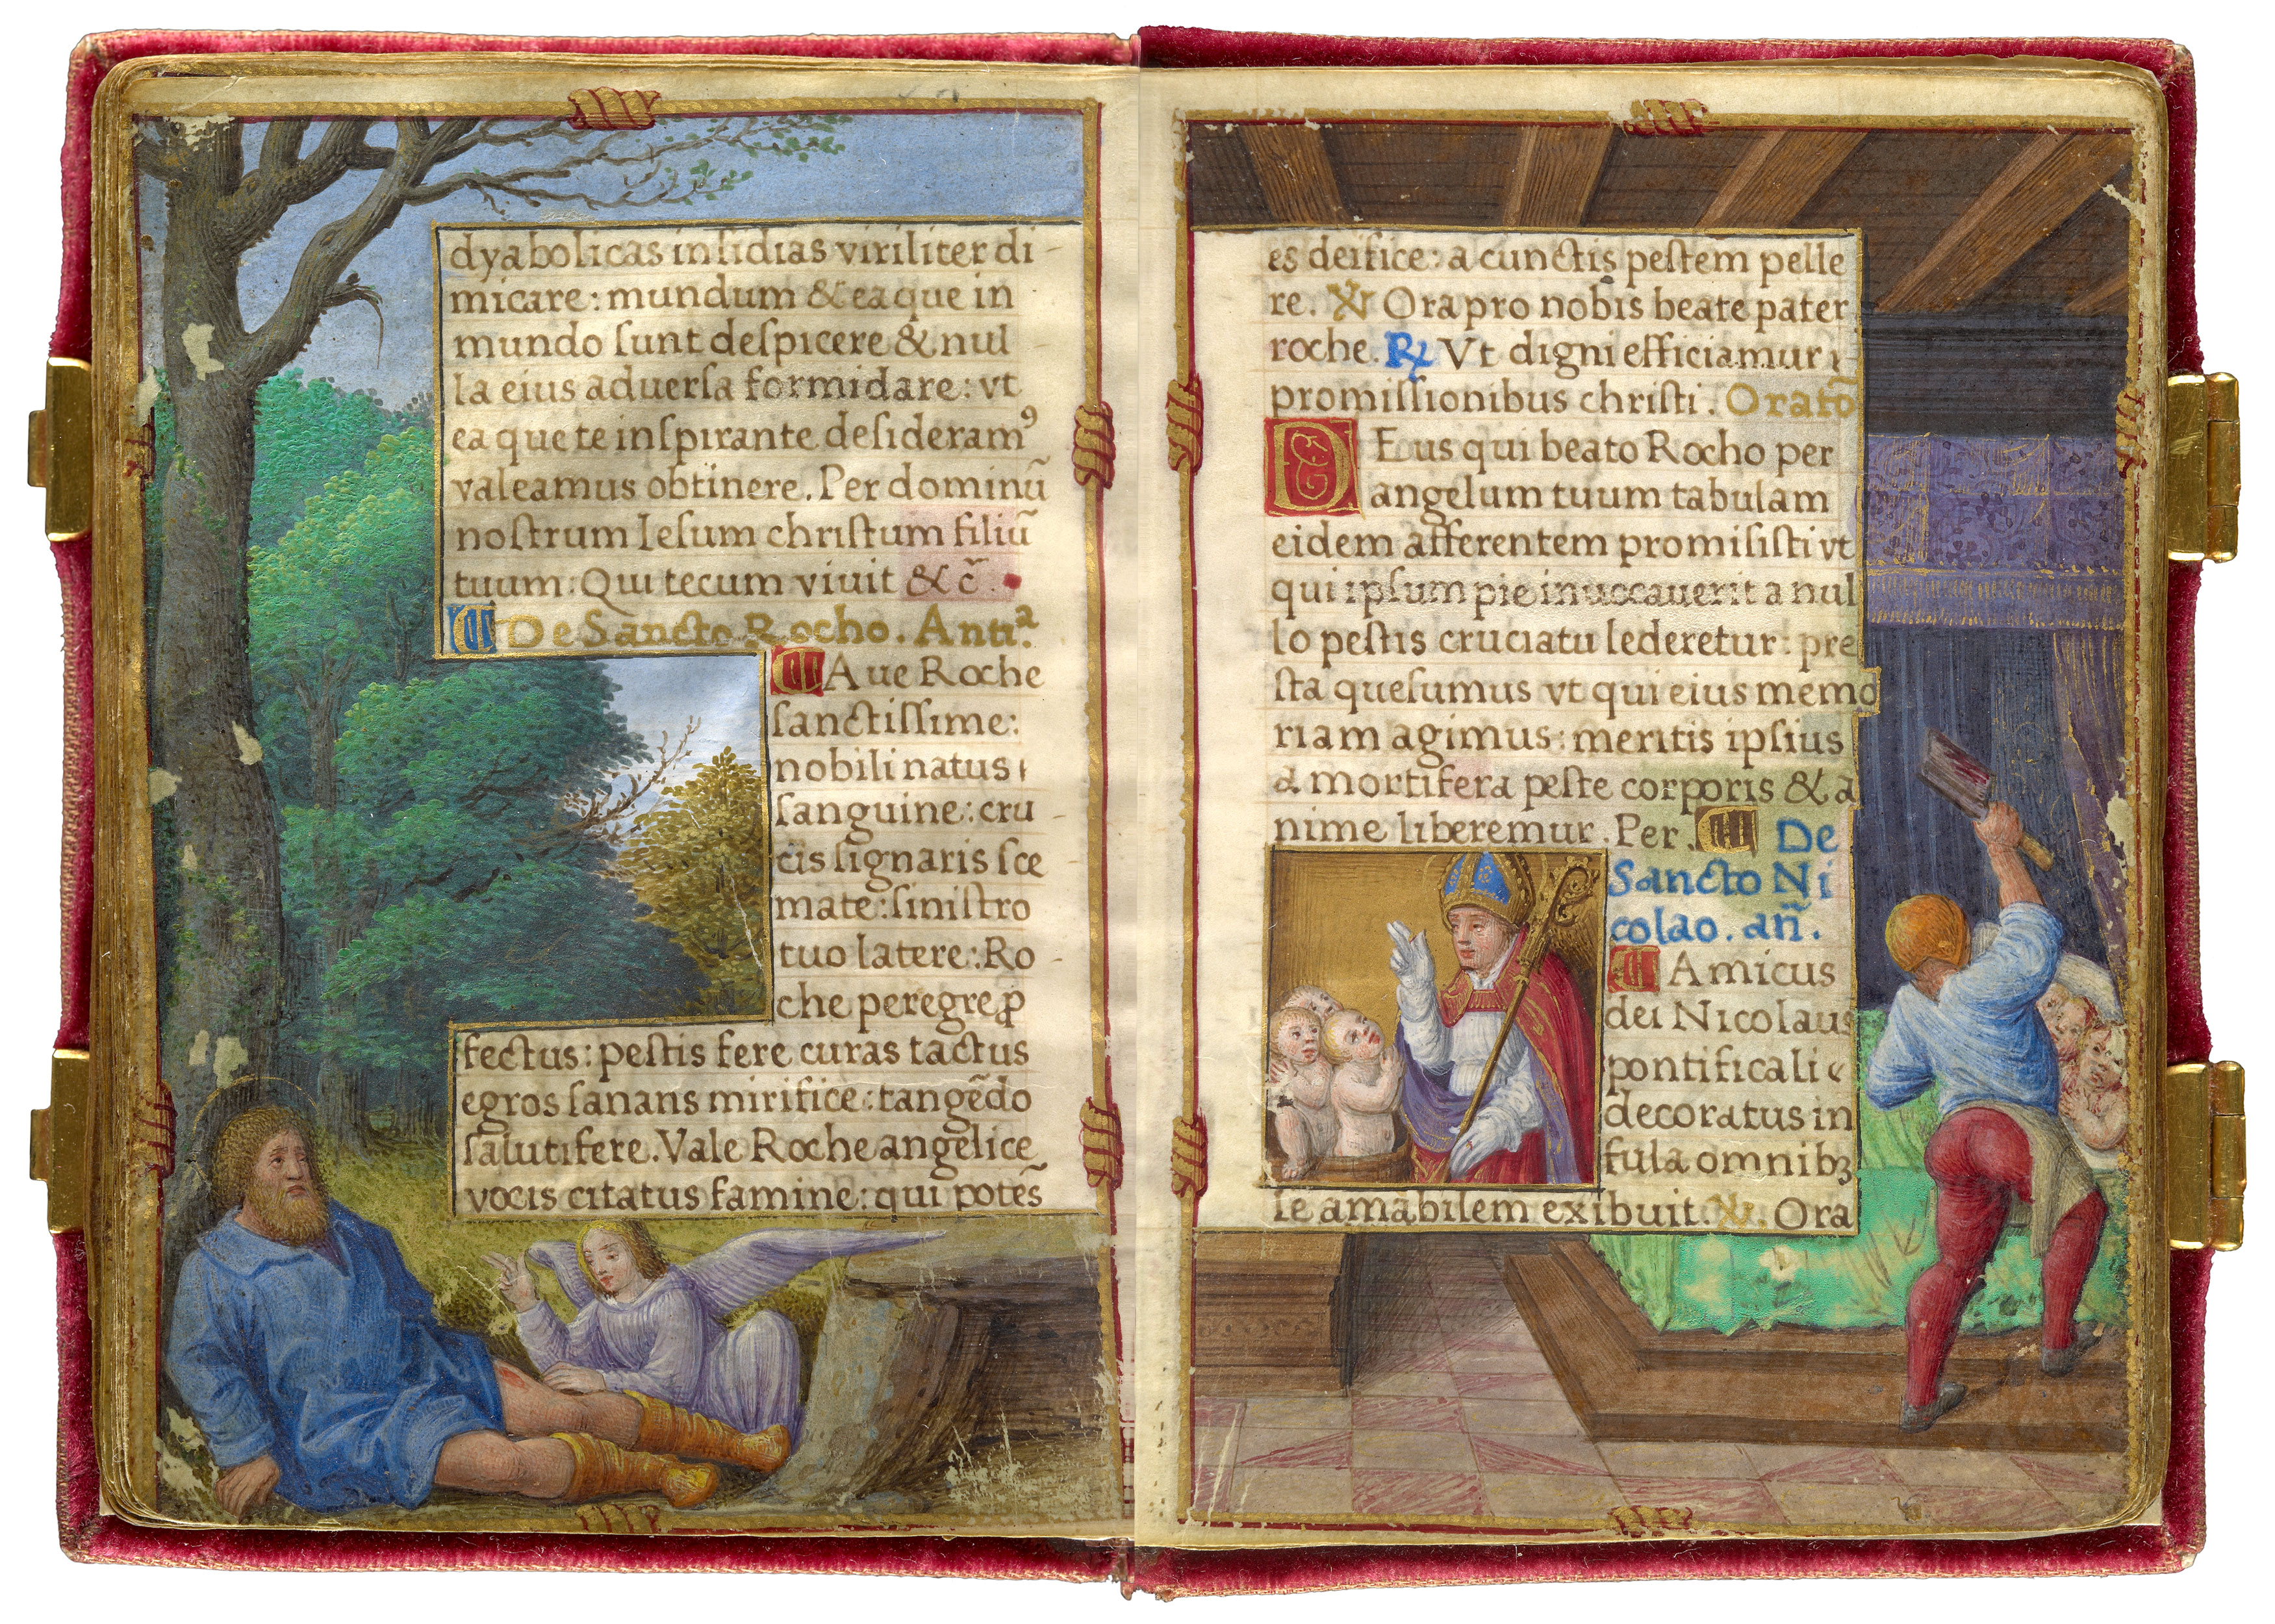 dyabolicas insidias viriliter di-
micare: mundum & ea que in
mundo sunt despicere & nul-
la eius aduersa formidare: vt
ea que te inspirante desideram⁹
valeamus obtinere. Per dominū
nostrum Iesum christum filiū
tuum: Qui tecum viuit & c̄.
De Sancto Rocho. Antiᵃ.
Aue Roche
sanctissime:
nobili natus
sanguine: cru-
cis signaris sce
mate: sinistro
tuo latere: Ro-
che peregre ꝓ
fectus: pestis fere curas tactus
egros sanans mirifice: tangēdo
salutifere. Vale Roche angelice
vocis citatus famine: qui potēs
es deifice: a cunctis pestem pelle
re. ℣ Ora pro nobis beate pater
roche. ℟ Vt digni efficiamur
promissionibus christi. Oratō
DEus qui beato Rocho per
angelum tuum tabulam
eidem afferentem promisisti vt
qui ipsum pie inuocauerit a nul
lo pestis cruciatu lederetur: pre
sta quesumus vt qui eius memo
riam agimus: meritis ipsius
a mortifera peste corporis & a
nime liberemur. Per. De
Sancto Ni
colao. añ.
Amicus
dei Nicolaus
pontificali
decoratus in
fula omnibꝫ
se amabilem exibuit. ℣. Ora